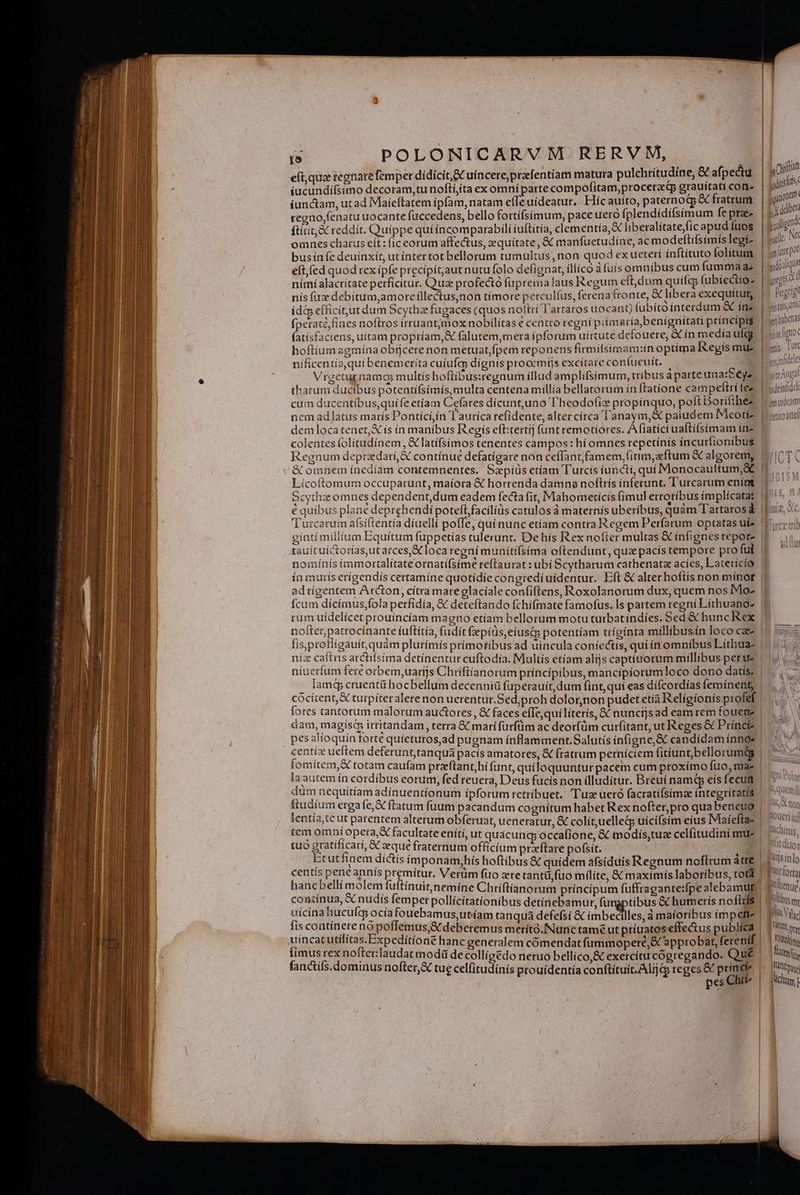 16 POLONICARVM RERVM,
est, quæ regnare semper didicit, & uincere, præsentiam matura pulchritudine, & aspectu
iucundissimo decoram, tu nosti, ita ex omni parte compositam, proceræq; grauitati con-
iunctam, ut ad Maiestatem ipsam, natam esse uideatur. Hic auito, paternoq; & fratrum
regno, senatu uocante succedens, bello fortissimum, pace uero splendidissimum se præ-
stitit, & reddit. Quippe qui incomparabili iustitia, clementia, & liberalitate, sic apud suos
omnes charus est: sic eorum affectus, æquitate, & mansuetudine, ac modestissimis legi-
bus in se deuinxit, ut inter tot bellorum tumultus, non quod ex ueteri instituto solitum
est, sed quod rex ipse precipit, aut nutu solo designat, illico à suis omnibus cum summa a-
nimi alacritate perficitur. Quæ profecto suprema laus Regum est, dum quisq; subiectio-
nis suæ debitum, amore illectus, non timore perculsus, serena fronte, & libera exequitur,
idq; efficit, ut dum Scythæ fugaces (quos nostri Tartaros uocant) subito interdum & in-
sperate, fines nostros irruant, mox nobilitas è centro regni primaria, benignitati principis
satisfaciens, uitam propriam, & salutem, mera ipsorum uirtute deuouere, & in media usq;
hostium agmina obijcere non metuat, spem reponens firmissimam: in optima Regis mu-
nificentia, qui benemerita cuiusq; dignis procemijs excitare consueuit.
Vrgetur namq; multis hostibus: regnum illud amplissimum, tribus à parte una: Scy-
tharum ducibus potentissimis, multa centena millia bellatorum in statione campestri te-
cum ducentibus, qui se etiam Cesares dicunt, uno Theodosiæ propinquo, post Boristhe-
nem ad latus maris Pontici, in Taurica residente, alter circa Tanaym, & paludem Meotic-
dem loca tenet, & is in manibus Regis est: tertij sunt remotiores. Asiatici uastissimam in-
colentes solitudinem, & latissimos tenentes campos: hi omnes repetinis incursionibus
Regnum deprædari, & continue defatigare non cessant, famem, sitim, æstum & algorem,
& omnem inediam contemnentes. Sæpius etiam Turcis iuncti, qui Monocastrum, &
Licostomum occuparunt, maiora & horrenda damna nostris inferunt. Turcarum enim
Scythæ omnes dependent, dum eadem secta sit, Mahometicis simul erroribus implicata:
è quibus plane deprehendi potest, facilius catulos à maternis uberibus, quàm Tartaros à
Turcarum assistentia diuelli posse, qui nunc etiam contra Regem Persarum optatas ui-
ginti millium Equitum suppetias tulerunt. De his Rex noster multas & insignes repor-
tauit uictorias, ut arces, & loca regni munitissima ostendunt, quæ pacis tempore pro sui
nominis immortalitate ornatissime restaurat: ubi Scytharum cathenatæ acies, Latericio
in muris erigendis certamine quotidie congredi uidentur. Est & alter hostis non minor
ad rigentem Arcton, citra mare glaciale consistens, Roxolanorum dux, quem nos Mo-
scum dicimus, sola perfidia, & detestando schismate famosus. Is partem regni Lithuano-
rum uidelicet prouinciam magno etiam bellorum motu turbat indies. Sed & hunc Rex
noster, patrocinante iustitia, fudit sæpius, eiusq; potentiam triginta millibus in loco cæ-
sis, profligauit, quàm plurimis primoribus ad uincula coniectis, qui in omnibus Lithua-
niæ castris arctissima detinentur custodia. Multis etiam alijs captiuorum millibus per u-
niuersum fere orbem, uarijs Christianorum principibus, mancipiorum loco dono datis.
Iamq; cruentū hoc bellum decenniū superauit, dum sint, qui eas discordias seminent,
cōcitent, & turpiter alere non uerentur. Sed, proh dolor, non pudet etiā Religionis profes-
sores tantorum malorum auctores, & faces esse, qui literis, & nuncijs ad eam rem fouen-
dam, magisq; irritandam, terra & mari sursūm ac deorsūm cursitant, ut Reges & Princi-
pes alioquin forte quieturos, ad pugnam inflamment. Salutis insigne, & candidam inno-
centiæ uestem deferunt, tanquā pacis amatores, & fratrum perniciem sitiunt, bellorumq;
fomitem, & totam causam præstant, hi sunt, qui loquuntur pacem cum proximo suo, ma-
la autem in cordibus eorum, sed reuera, Deus fucis non illuditur. Breui namq; eis secun-
dūm nequitiam adinuentionum ipsorum retribuet. Tuæ uero sacratissimæ integritatis
studium erga se, & statum suum pacandum cognitum habet Rex noster, pro qua beneuo-
lentia, te ut parentem alterum obseruat, ueneratur, & colit, uelletq; uicissim eius Maiesta-
tem omni opera, & facultate eniti, ut quacunq; occasione, & modis, tuæ celsitudini mu-
tuo gratificari, & æque fraternum officium præstare possit.
Et ut finem dictis imponam, his hostibus & quidem assiduis Regnum nostrum à tre-
centis pene annis premitur. Verùm suo ære tantū, suo milite, & maximis laboribus, totā
hanc belli molem sustinuit, nemine Christianorum principum suffragante: spe alebamur
continua, & nudis semper pollicitationibus detinebamur, sumptibus & humeris nostris
uicina hucusq; ocia fouebamus, utiam tanquā defessi & imbecilles, à maioribus impen-
sis continere nō possemus, & deberemus merito. Nunc tamē ut priuatos effectus publica
uincat utilitas. Expeditionē hanc generalem cōmendat summopere, & approbat, serenis-
simus rex noster: laudat modū de colligēdo neruo bellico, & exercitu cōgregando. Quē
sanctiss. dominus noster, & tuę celsitudinis prouidentia constituit. Alijq; reges & princi-
pes Chri-